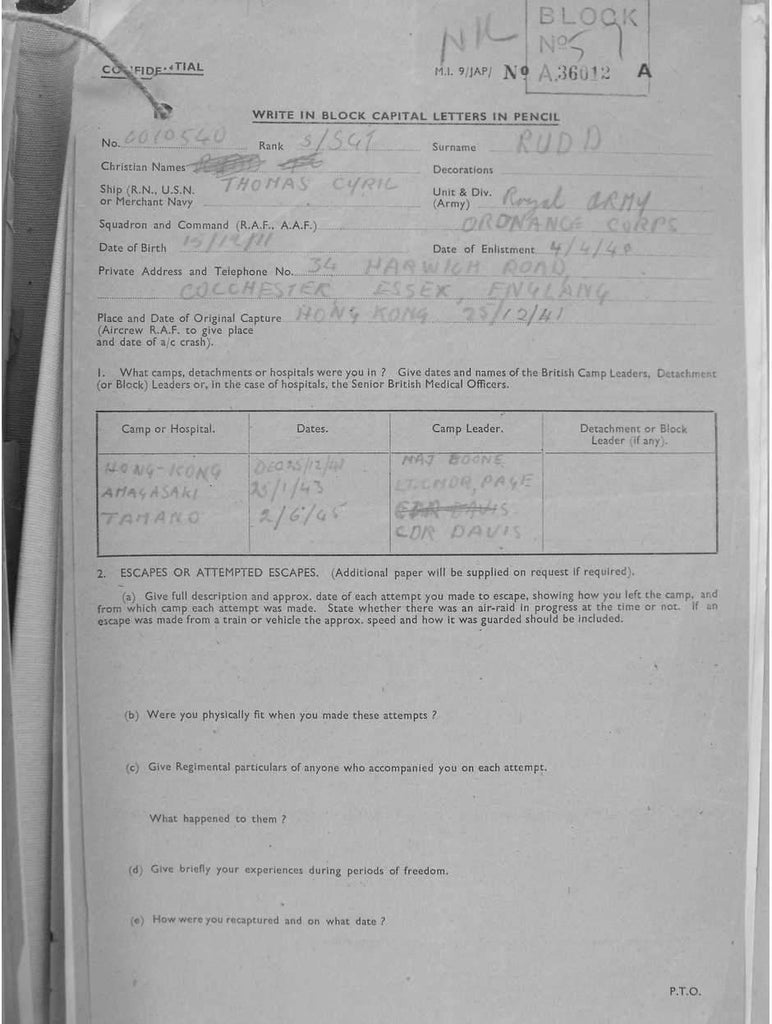 NIL
BLOCK
No 5
CONFIDENTIAL
M.I. 9/JAP/ No A.36012 A
WRITE IN BLOCK CAPITAL LETTERS IN PENCIL
No. 6010540 Rank S/SGT Surname RUDD
Christian Names Decorations
Ship (R.N., U.S.N. or Merchant Navy THOMAS CYRIL Unit & Div. (Army) Royal ARMY
Squadron and Command (R.A.F., A.A.F.) ORDNANCE CORPS
Date of Birth 15/12/11 Date of Enlistment 4/4/40
Private Address and Telephone No. 34 HARWICH ROAD
COLCHESTER ESSEX, ENGLAND
Place and Date of Original Capture HONG KONG 25/12/41
(Aircrew R.A.F. to give place
and date of a/c crash).
1. What camps, detachments or hospitals were you in ? Give dates and names of the British Camp Leaders, Detachment
(or Block) Leaders or, in the case of hospitals, the Senior British Medical Officers.
Camp or Hospital. Dates. Camp Leader. Detachment or Block
Leader (if any).
HONG-KONG DEC 25/12/41 MAJ BOONE
AMAGASAKI 25/1/43 LT. CMDR, PAGE
TAMANO 2/6/45 CDR DAVIS
CDR DAVIS
2. ESCAPES OR ATTEMPTED ESCAPES. (Additional paper will be supplied on request if required).
(a) Give full description and approx. date of each attempt you made to escape, showing how you left the camp, and
from which camp each attempt was made. State whether there was an air-raid in progress at the time or not. If an
escape was made from a train or vehicle the approx. speed and how it was guarded should be included.
(b) Were you physically fit when you made these attempts ?
(c) Give Regimental particulars of anyone who accompanied you on each attempt.
What happened to them ?
(d) Give briefly your experiences during periods of freedom.
(e) How were you recaptured and on what date ?
P.T.O.